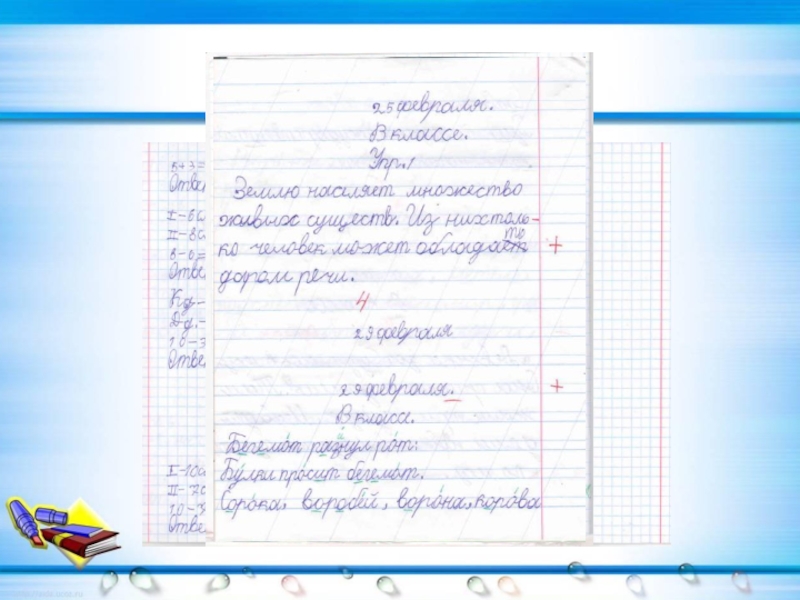 25 февраля.
В классе.
Упр.1
Землю насиляет множество
живых существ. Из них толь-
ко человек может обладать
даром речи.
4
29 февраля
29 февраля.
В класе.
Бегемот разнул рот:
Булки просит бегемот.
Сорока, воробей, ворона, корова
К+3=
Отве
I-6
II-8
8-6=
Отве
Кд-
Дд.-
10-3
Отве
I-10
II-7
10-3
Отве